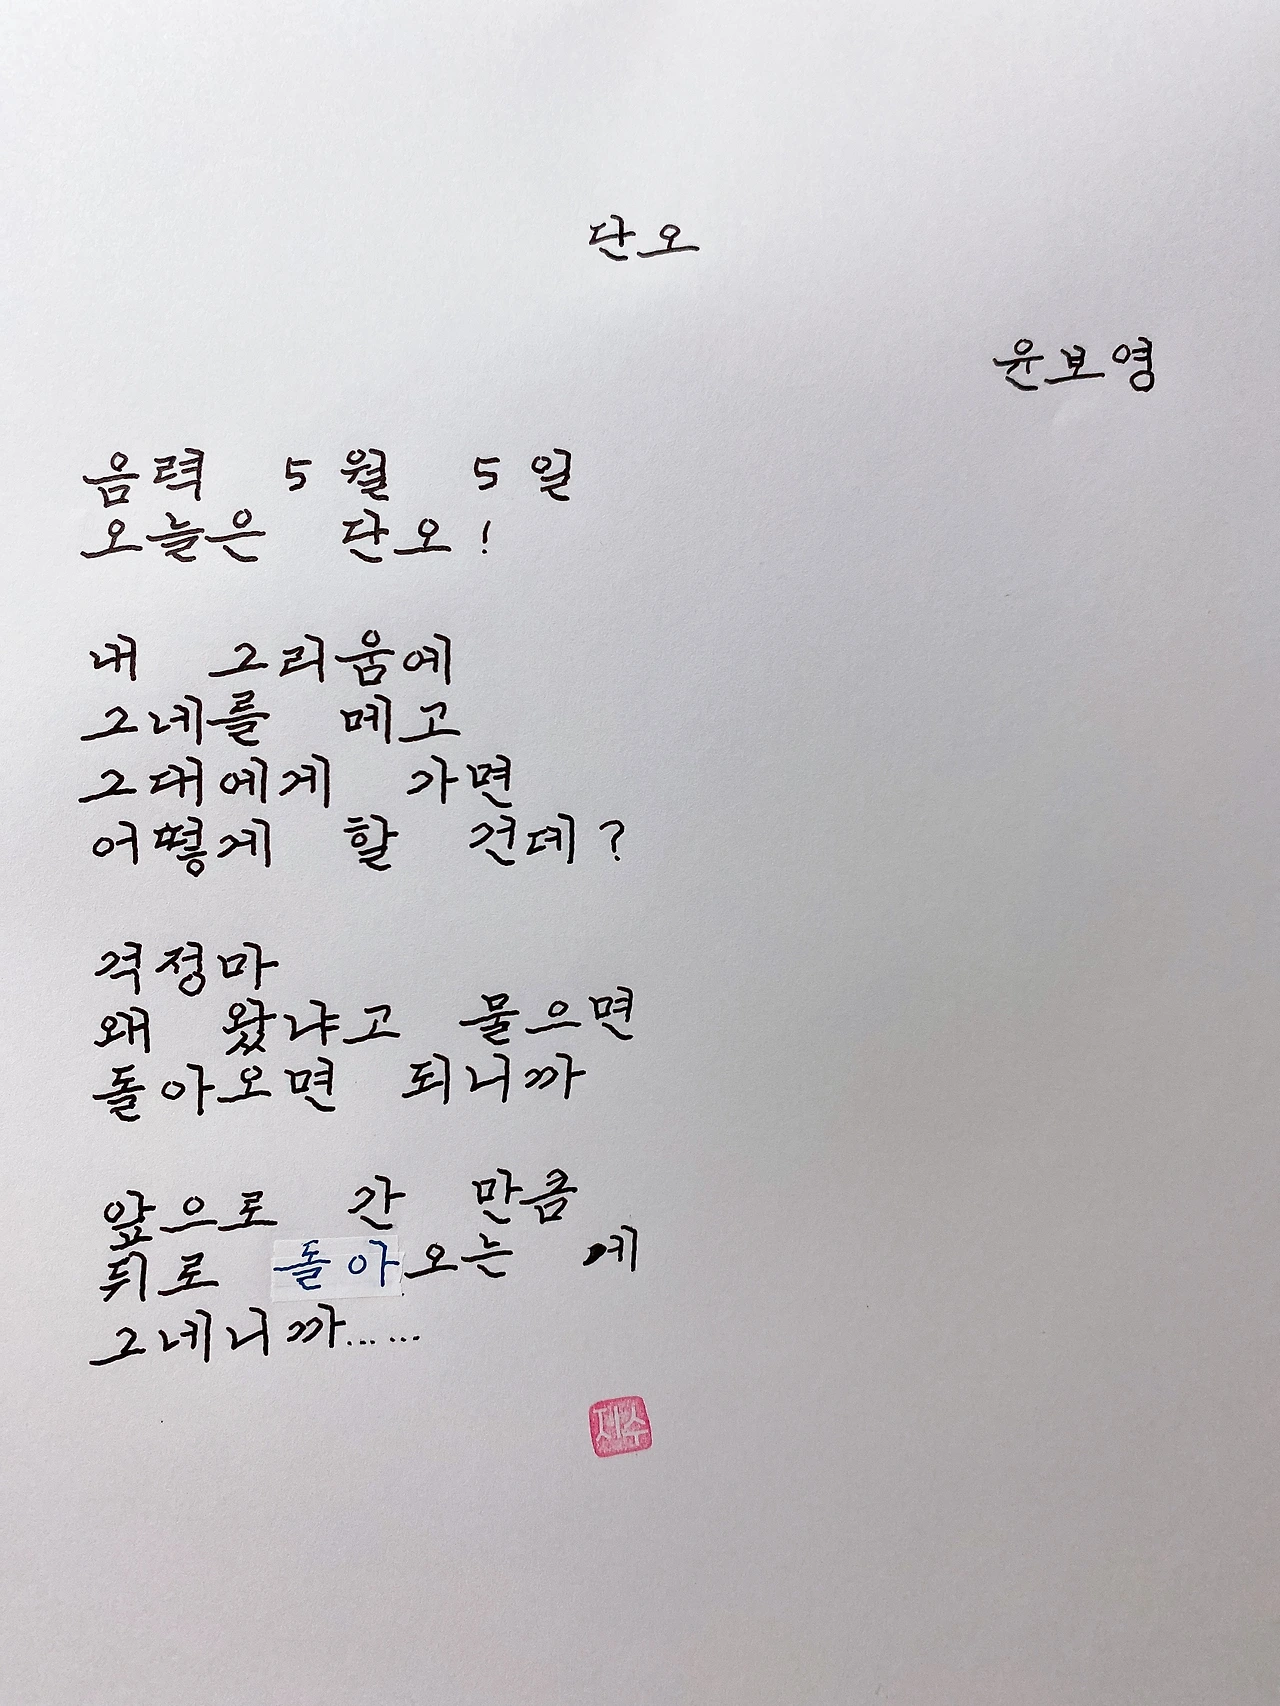 단오
윤보영
음력 5월 5일
오늘은 단오!
내 그리움에
그네를 메고
그대에게 가면
어떻게 할 건데?
걱정마
왜 왔냐고 물으면
돌아오면 되니까
앞으로 간 만큼
뒤로 돌아오는 게
그네니까……
제수